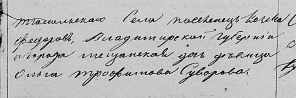 Тагильскаго Села поселенецъ Евгеній
Федоровъ, Владимирской Губерніи
города мещанская дочь девица
Ольга Трофимова Суворова.